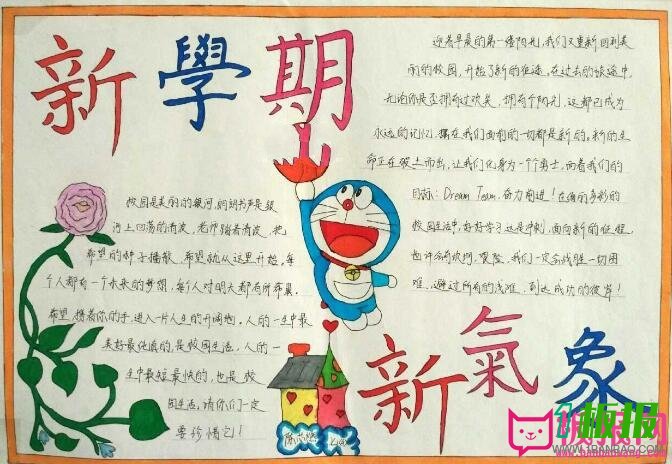 新學期
迎着早晨的第一缕阳光,我们又重新回到美
丽的校园,开启了新的征途,在过去的旅途中,
无论你是否拥有过欢笑,拥有个阳光,这都已成为
永远的记忆,摆在我们面前的一切都是新的。新的生
命正在破土而出,让我们化身为一个勇士,向着我们的
目标:Dream Team,奋力前进!在绚丽多彩的
校园生活中,好好学习这是冲刺,面向新的征程
也许会有坎坷,艰险,我们一定会战胜一切困
难,避过所有的浅滩,到达成功的彼岸!
校园是美丽的银河,朗朗书声是银
河上回荡的清波,老师踏着清波,把
希望的种子播散,希望就从这里开始。每
个人都有一个未来的梦想,每个人对明天都有所希冀。
希望携着你的手,进入一片人生的开阔地。人的一生中最
美好最快乐的,是校园生活,人的一
生中最短最快的,也是校
园生活,请你们一定
要珍惜它!
新氣象
板报网